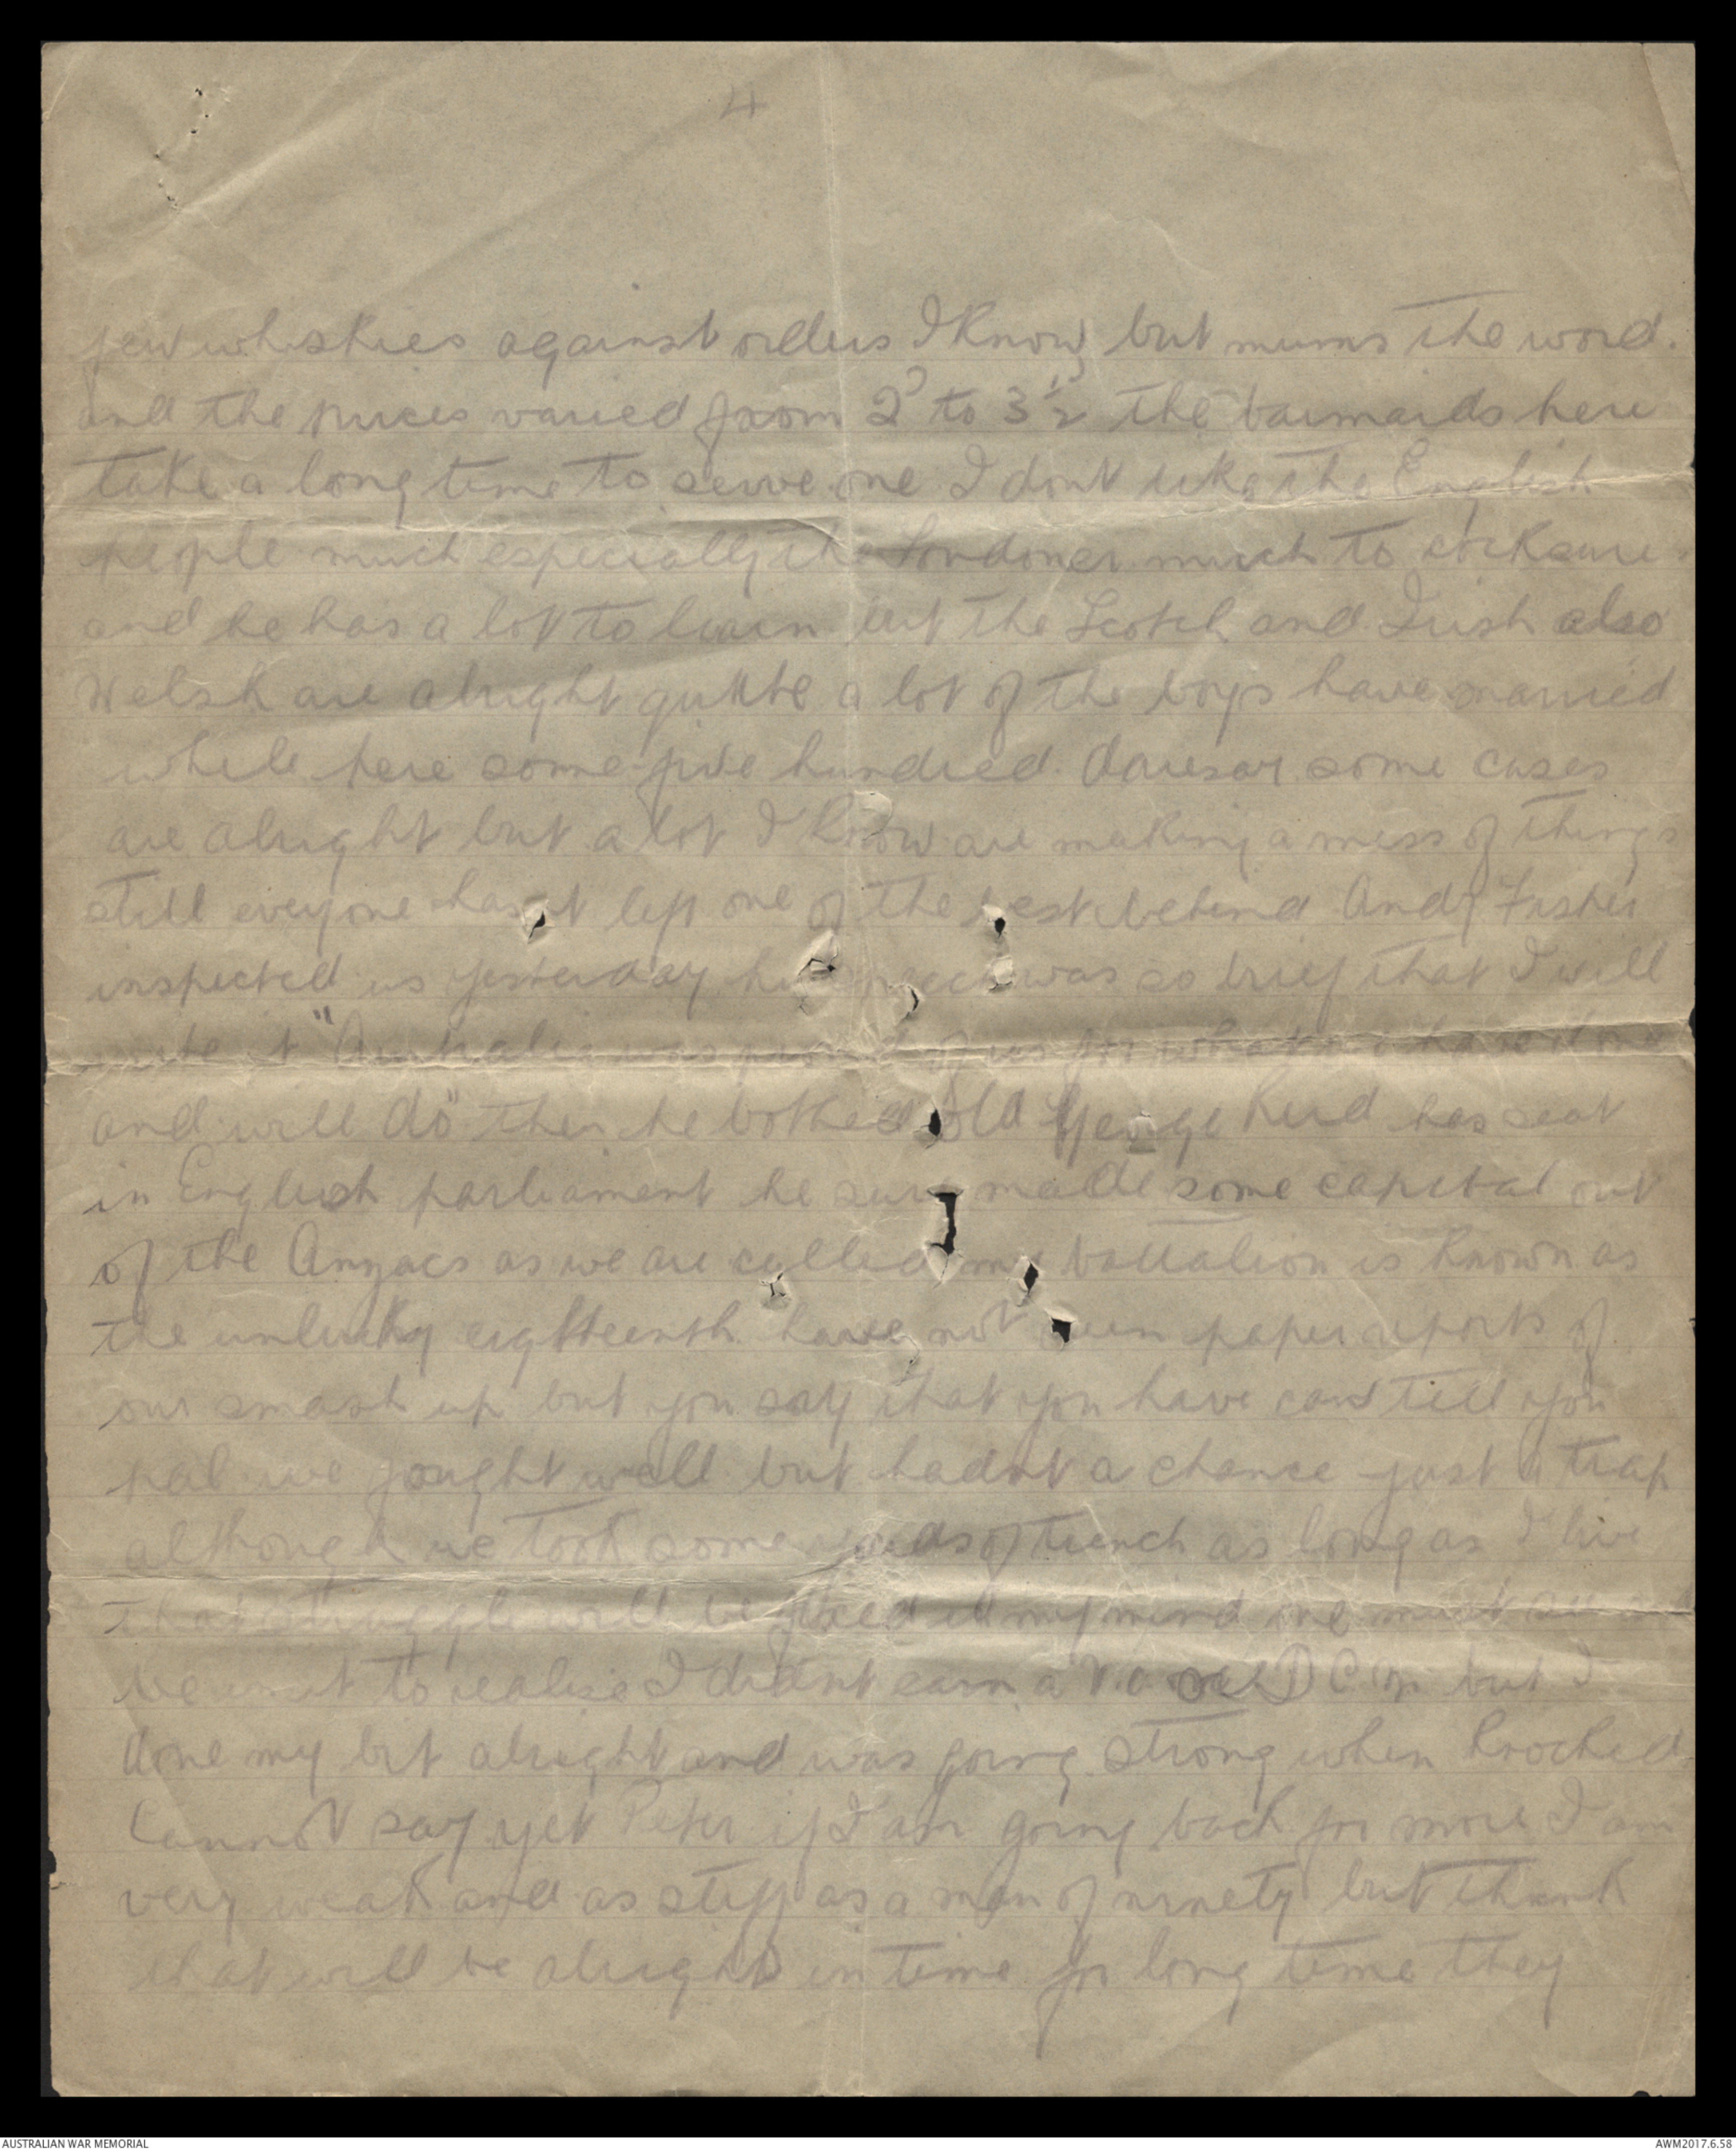 4
few whiskies against orders I know, but mums the word.
and the prices varied from 2d to 3½ the barmaids here
take a long time to serve one I dont like the English
people much especially the Londoner much to cocksure
and he has a lot to learn but the Scotch and Irish also
Welsh are alright quite a lot of the boys have married
while here some five hundred. daresay some cases
are alright but a lot I know are making a mess of things
still everyone hasnt left one of the best behind. Andy Fisher
inspected us yesterday his speech was so brief that I will
write it "Australia was proud of us for what we have done
and will do" then he bothed old George Reid has seat
in English parliament he sure made some capital out
of the Anzacs as we are called my battalion is known as
the unlucky eighteenth. have not seen paper reports of
our smash up but you say that you have can tell you
pal we fought well but hadnt a chance just a trap
although we took some yards of trench as long as I live
that struggle will be fixed in my mind one must
be in it to realise I didnt earn a V.C or D C M but I
done my bit alright and was going strong when knocked
Cannot say yet Peter if I am going back for more I am
very weak and as stiff as a man of ninety but think
that will be alright in time for long time they
AUSTRALIAN WAR MEMORIAL
AWM2017.6.58